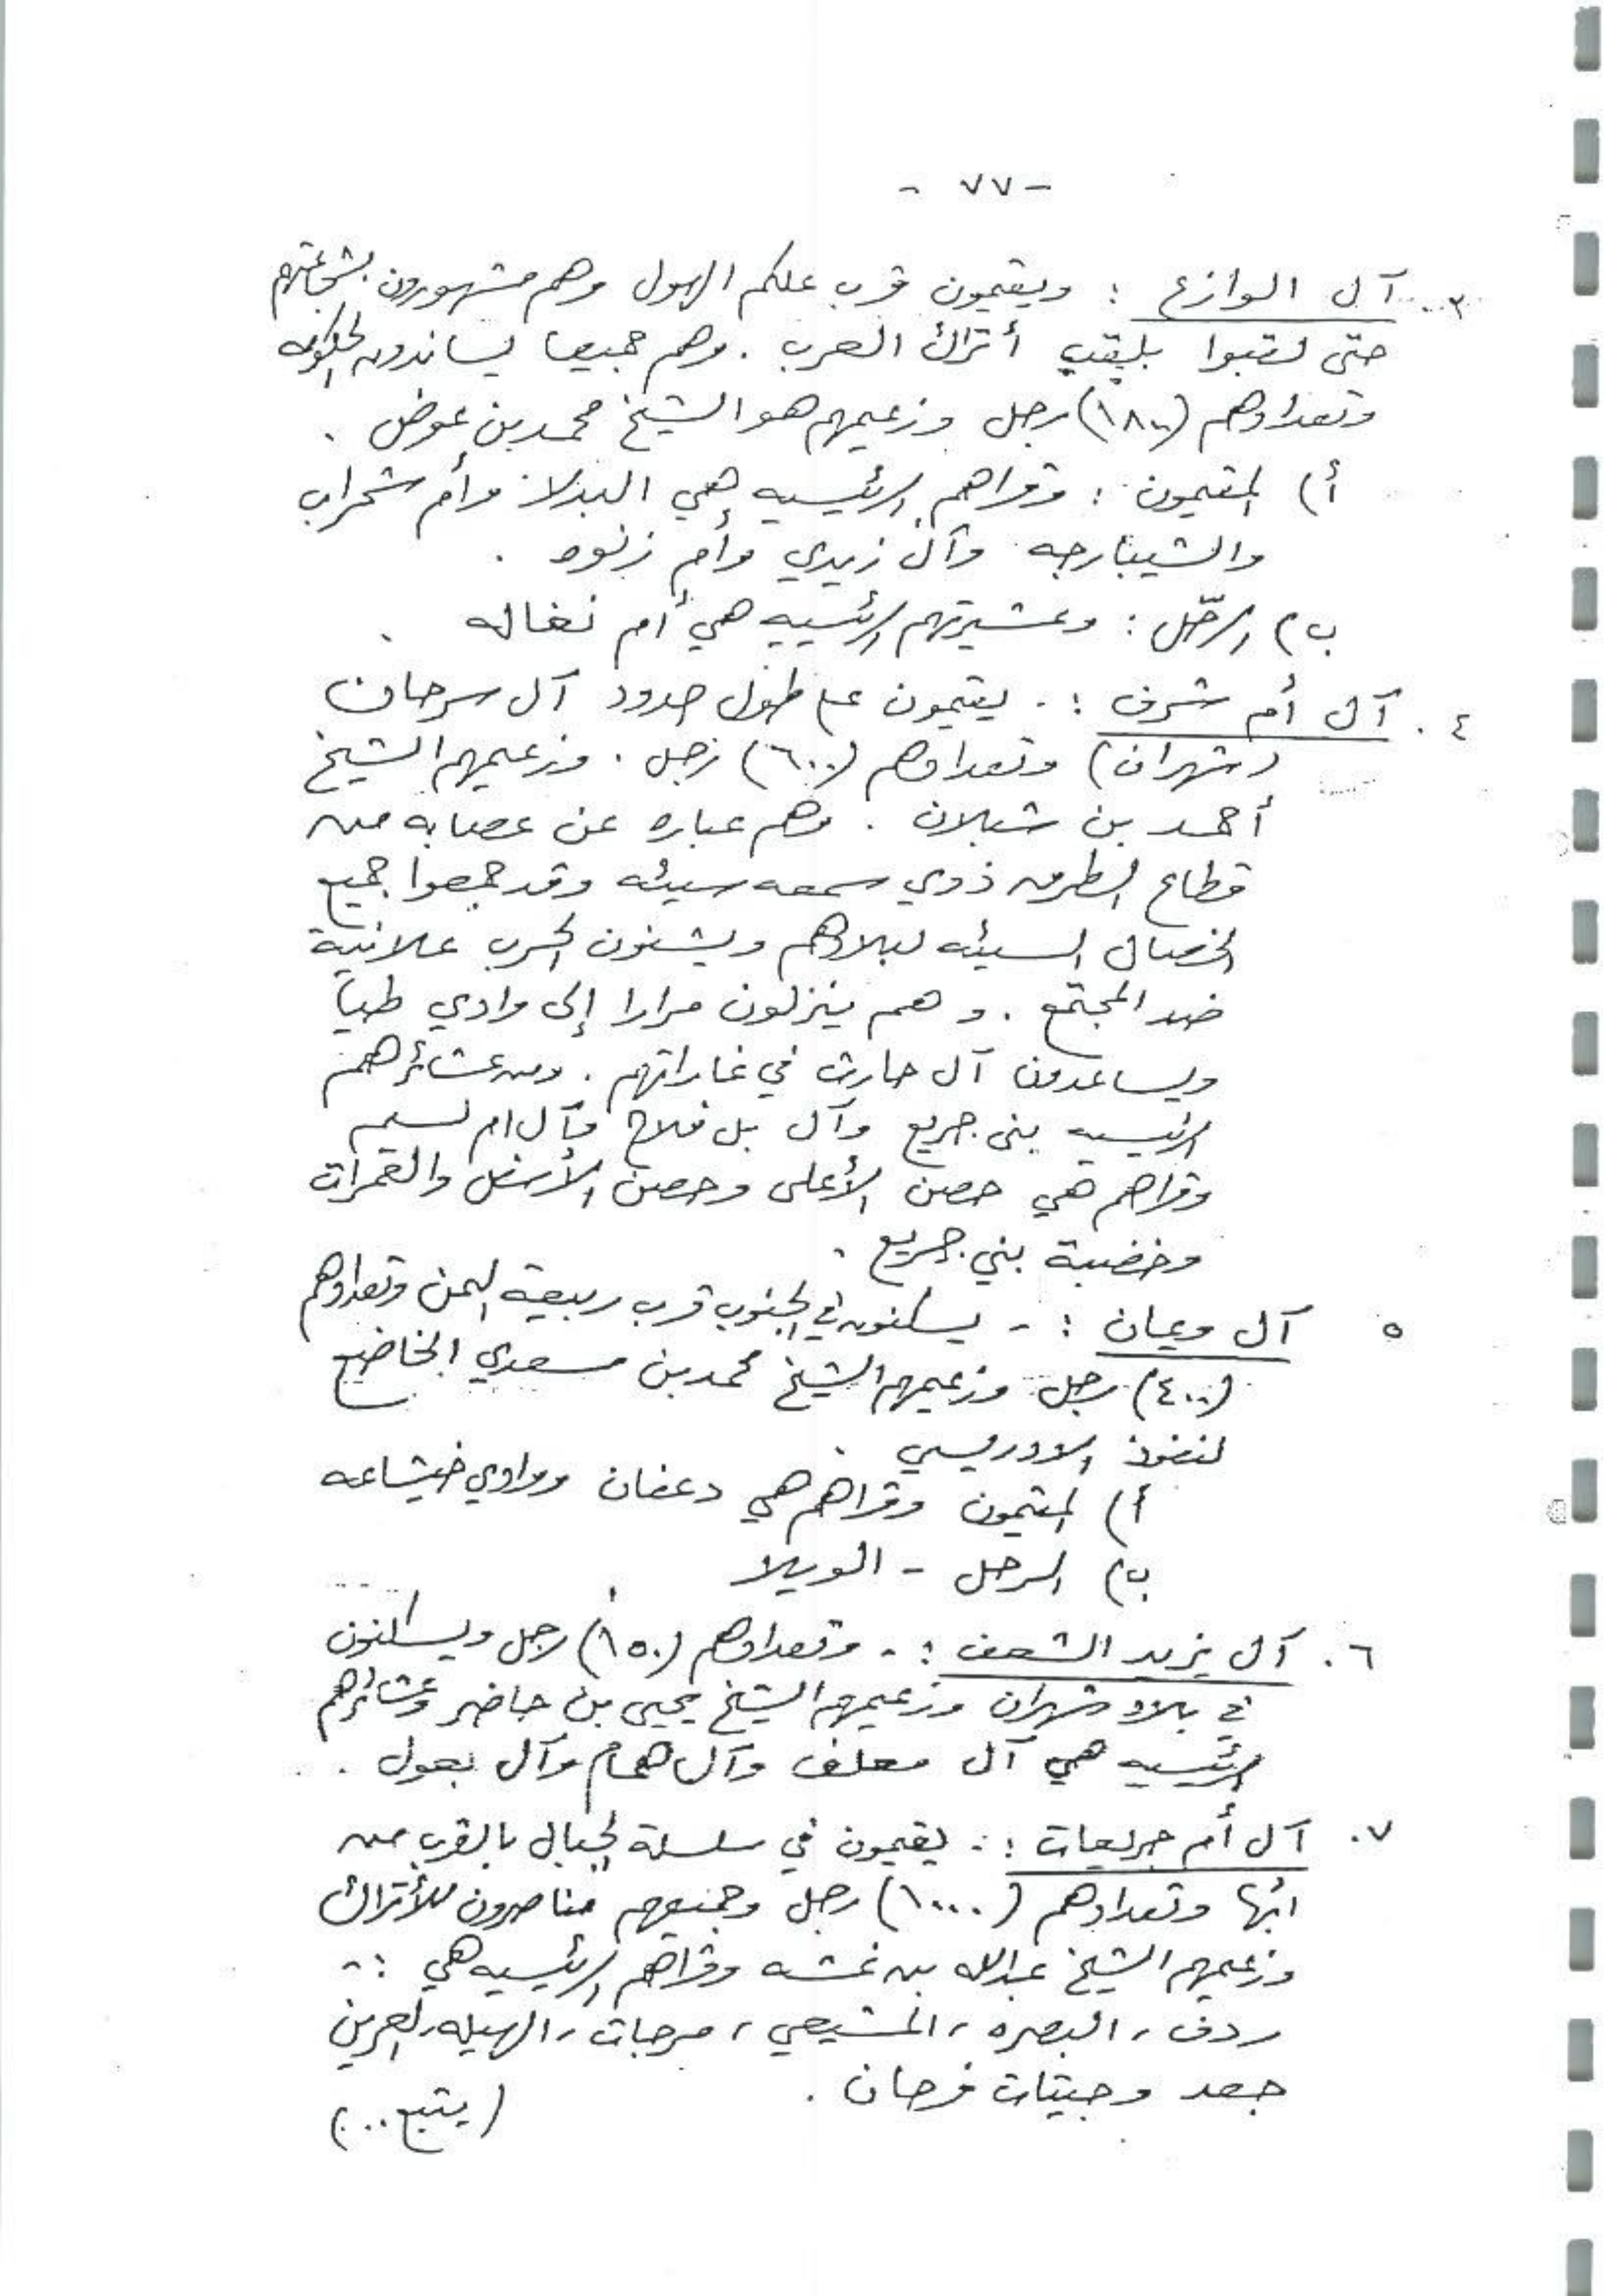 - ٧٧ -
٣. آل الوازع : ويقيمون قرب علكم الهول وهم مشهورون بشجاعتهم
حتى لقبوا بلقب أتراك العرب . وهم جميعا يساندون الحكومه
وتعدادهم (١٨٠٠) رجل وزعيمهم هو الشيخ محمد بن عوض .
أ) المقيمون : وقراهم الرئيسيه هي البدلا وأم شحراب
والشيبارجه وآل زيدي وأم زنود .
ب) الرحّل : وعشيرتهم الرئيسيه هي أم نغاله .
٤. آل أم شرف : - يقيمون على طول حدود آل سرحان
(شهران) وتعدادهم (٦٠٠) رجل . وزعيمهم الشيخ
أحمد بن شبلان . وهم عباره عن عصابه من
قطاع الطرق ذوي سمعه سيئه وقد جمعوا جميع
الخصال السيئه لبلادهم ويشنون الحرب علانية
ضد المجتمع . وهم ينزلون مرارا إلى وادي طيباً
ويساعدون آل حارث في غاراتهم . ومن عشائرهم
الرئيسيه بني جريع وآل بل فلاح وآل ام لسيم
وقراهم هي حصن الأعلى وحصن الأسفل والقمرات
وخضبة بني جريع .
٥ آل ويمان : - يسكنون في الجنوب قرب ربيعة اليمن وتعدادهم
(٤٠٠) رجل وزعيمهم الشيخ محمد بن مسعدي الخاضع
لنفوذ الادريسي .
أ) المقيمون وقراهم هي دعفان ووادي خيشاعه
ب) الرحل - الويلا
٦. آل يزيد الشعف : - وتعدادهم (١٥٠) رجل ويسكنون
في بلاد شهران وزعيمهم الشيخ يحيى بن حاضر وعشائرهم
الرئيسيه هي آل معلف وآل همام وآل بعول .
٧. آل أم جريعات : - يقيمون في سلسلة الجبال بالقرب من
ابها وتعدادهم (١٠٠٠) رجل وجميعهم مناصرون للأتراك
وزعيمهم الشيخ عبدالله بن غشه وقراهم الرئيسيه هي : -
ردف ، البصره ، المشيعي ، مرحبات ، الهيله ، العرين
جعد وجيتات فرحان .
(يتبع ..)